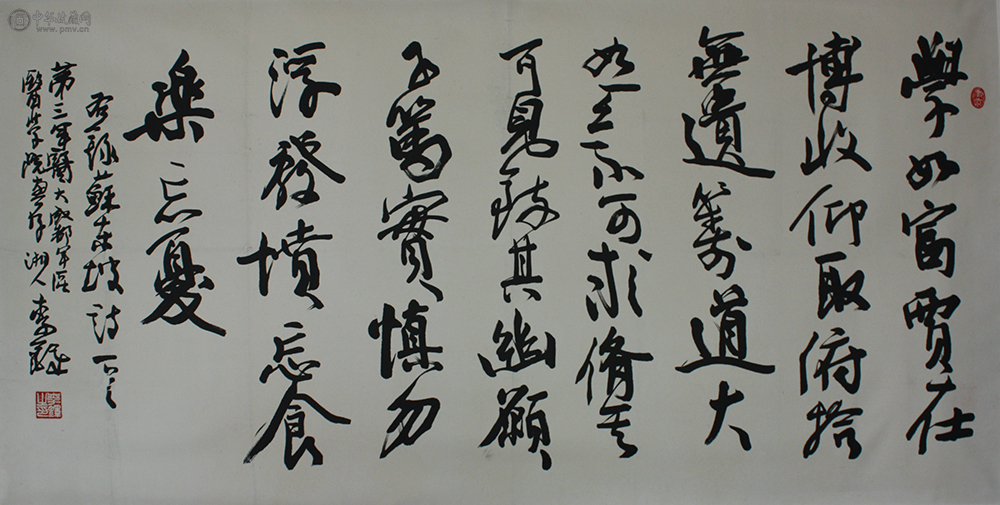 中华收藏网
www.pmv.cn
學如富賈在
博收仰取俯拾
無遺籌道大
如天不可求脩其
可見致其幽願
子篤實慎勿
浮發憤忘食
樂忘憂
右錄蘇東坡詩
第三軍醫大成都軍區
醫學院 湘人李